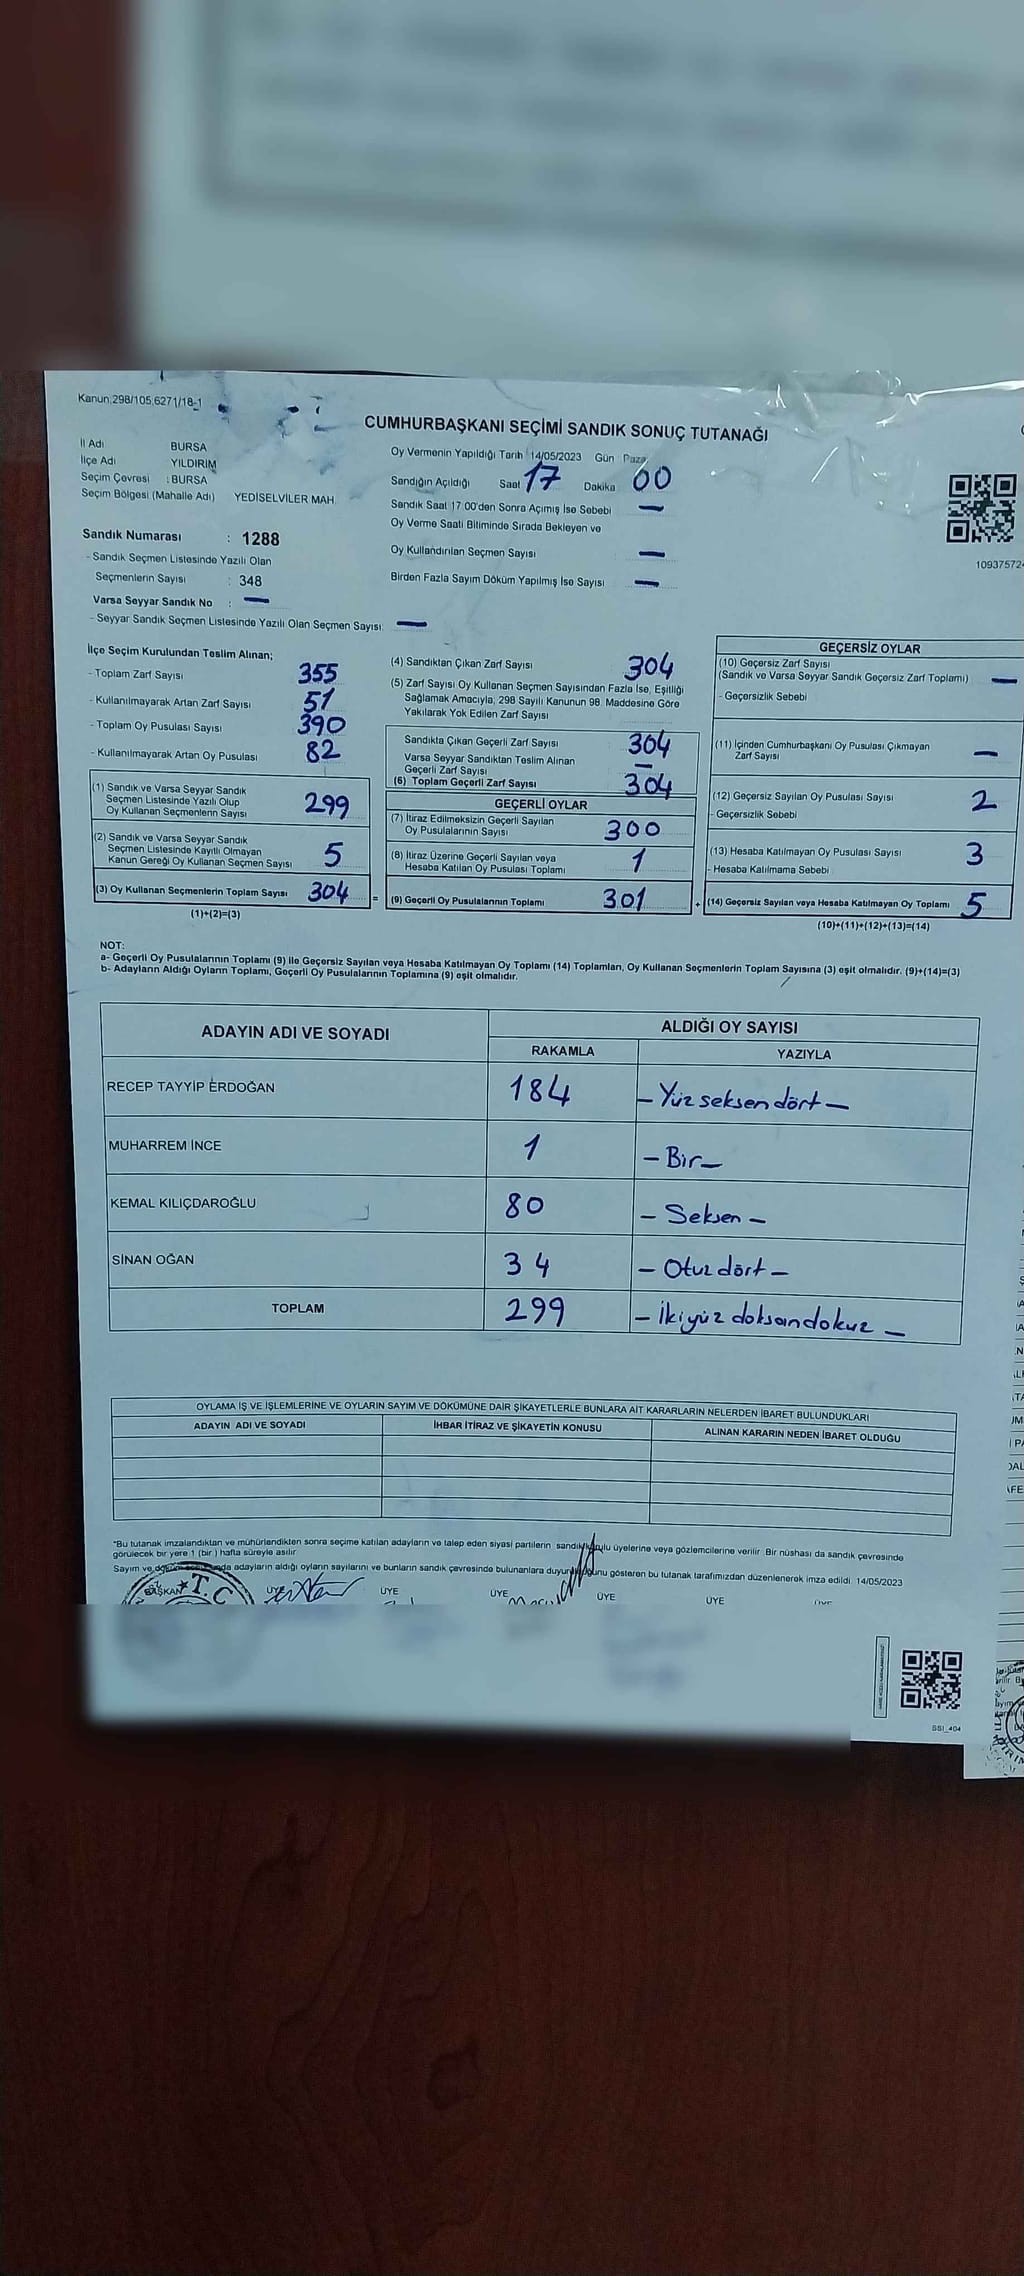 Kanun;298/105,6271/18-1
CUMHURBAŞKANI SEÇİMİ SANDIK SONUÇ TUTANAĞI
İl Adı BURSA
İlçe Adı YILDIRIM
Seçim Çevresi : BURSA
Seçim Bölgesi (Mahalle Adı) YEDİSELVİLER MAH.
Sandık Numarası : 1288
- Sandık Seçmen Listesinde Yazılı Olan
Seçmenlerin Sayısı : 348
Varsa Seyyar Sandık No : —
- Seyyar Sandık Seçmen Listesinde Yazılı Olan Seçmen Sayısı: —
Oy Vermenin Yapıldığı Tarih 14/05/2023 Gün : Pazar
Sandığın Açıldığı Saat 17 Dakika 00
Sandık Saat 17:00'den Sonra Açılmış İse Sebebi —
Oy Verme Saati Bitiminde Sırada Bekleyen ve
Oy Kullandırılan Seçmen Sayısı —
Birden Fazla Sayım Döküm Yapılmış İse Sayısı —
10937572
İlçe Seçim Kurulundan Teslim Alınan;
- Toplam Zarf Sayısı 355
- Kullanılmayarak Artan Zarf Sayısı 51
- Toplam Oy Pusulası Sayısı 390
- Kullanılmayarak Artan Oy Pusulası 82
(1) Sandık ve Varsa Seyyar Sandık
Seçmen Listesinde Yazılı Olup
Oy Kullanan Seçmenlerin Sayısı 299
(2) Sandık ve Varsa Seyyar Sandık
Seçmen Listesinde Kayıtlı Olmayan
Kanun Gereği Oy Kullanan Seçmen Sayısı 5
(3) Oy Kullanan Seçmenlerin Toplam Sayısı 304
(1)+(2)=(3)
(4) Sandıktan Çıkan Zarf Sayısı 304
(5) Zarf Sayısı Oy Kullanan Seçmen Sayısından Fazla İse, Eşitliği
Sağlamak Amacıyla, 298 Sayılı Kanunun 98. Maddesine Göre
Yakılarak Yok Edilen Zarf Sayısı
Sandıkta Çıkan Geçerli Zarf Sayısı 304
Varsa Seyyar Sandıktan Teslim Alınan
Geçerli Zarf Sayısı —
(6) Toplam Geçerli Zarf Sayısı 304
GEÇERLİ OYLAR
(7) İtiraz Edilmeksizin Geçerli Sayılan
Oy Pusulalarının Sayısı 300
(8) İtiraz Üzerine Geçerli Sayılan veya
Hesaba Katılan Oy Pusulası Toplamı 1
= (9) Geçerli Oy Pusulalarının Toplamı 301
GEÇERSİZ OYLAR
(10) Geçersiz Zarf Sayısı
(Sandık ve Varsa Seyyar Sandık Geçersiz Zarf Toplamı) —
- Geçersizlik Sebebi
(11) İçinden Cumhurbaşkanı Oy Pusulası Çıkmayan
Zarf Sayısı —
(12) Geçersiz Sayılan Oy Pusulası Sayısı 2
- Geçersizlik Sebebi
(13) Hesaba Katılmayan Oy Pusulası Sayısı 3
- Hesaba Katılmama Sebebi
+ (14) Geçersiz Sayılan veya Hesaba Katılmayan Oy Toplamı 5
(10)+(11)+(12)+(13)=(14)
NOT:
a- Geçerli Oy Pusulalarının Toplamı (9) ile Geçersiz Sayılan veya Hesaba Katılmayan Oy Toplamı (14) Toplamları, Oy Kullanan Seçmenlerin Toplam Sayısına (3) eşit olmalıdır. (9)+(14)=(3)
b- Adayların Aldığı Oyların Toplamı, Geçerli Oy Pusulalarının Toplamına (9) eşit olmalıdır.
ADAYIN ADI VE SOYADI ALDIĞI OY SAYISI
RAKAMLA YAZIYLA
RECEP TAYYİP ERDOĞAN 184 — Yüz seksen dört —
MUHARREM İNCE 1 — Bir —
KEMAL KILIÇDAROĞLU 80 — Seksen —
SİNAN OĞAN 34 — Otuz dört —
TOPLAM 299 — İkiyüz doksandokuz —
OYLAMA İŞ VE İŞLEMLERİNE VE OYLARIN SAYIM VE DÖKÜMÜNE DAİR ŞİKAYETLERLE BUNLARA AİT KARARLARIN NELERDEN İBARET BULUNDUKLARI
ADAYIN ADI VE SOYADI İHBAR İTİRAZ VE ŞİKAYETİN KONUSU ALINAN KARARIN NEDEN İBARET OLDUĞU
*Bu tutanak imzalandıktan ve mühürlendikten sonra seçime katılan adayların ve talep eden siyasi partilerin sandık kurulu üyelerine veya gözlemcilerine verilir. Bir nüshası da sandık çevresinde
görülecek bir yere 1 (bir) hafta süreyle asılır.
Sayım ve döküm sonunda adayların aldığı oyların sayılarını ve bunların sandık çevresinde bulunanlara duyurulduğunu gösteren bu tutanak tarafımızdan düzenlenerek imza edildi. 14/05/2023
BAŞKAN T.C ÜYE ÜYE ÜYE ÜYE ÜYE ÜYE
SSI_404